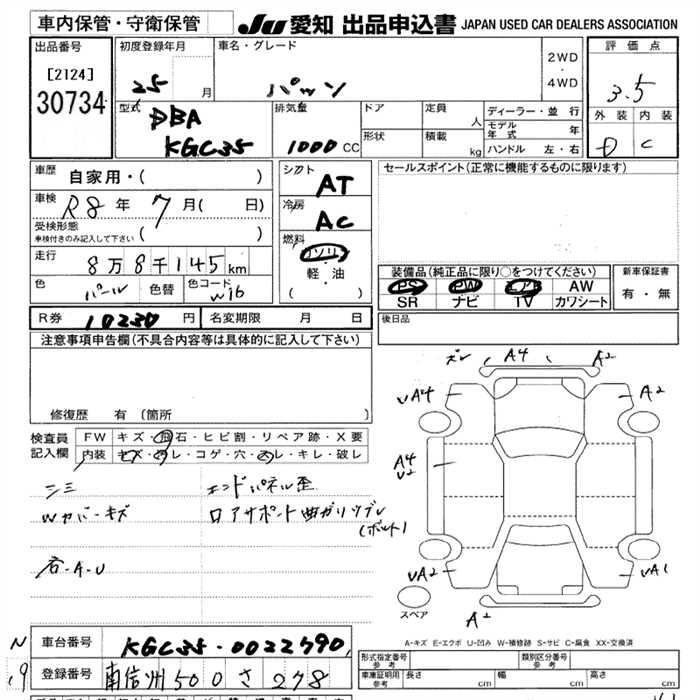 車内保管・守衛保管
JU 愛知 出品申込書 JAPAN USED CAR DEALERS ASSOCIATION
出品番号
[2124]
30734
初度登録年月
25 月
車名・グレード
パッソ
2WD
・
4WD
評価点
3.5
外装 内装
D C
型式
DBA
KGC35
排気量
1000 CC
ドア
形状
定員 人
積載 kg
ディーラー・並 行
モデル年式 年
ハンドル 左・右
車歴
自家用・( )
車検
R8 年 7 月( 日)
受検形態
車検付きのみ記入して下さい ( )
走行
8万8千145km
色 パール 色替 色コード W16
シフト
AT
冷房
AC
燃料
ガソリン
軽・油
( )
セールスポイント(正常に機能するものに限ります)
装備品(純正品に限り○をつけてください)
PS PW エアB AW
SR ナビ TV カワシート
新車保証書
有・無
R券 10230 円 名変期限 月 日
後日品
注意事項申告欄(不具合内容等は具体的に記入して下さい)
修復歴 有(箇所 )
検査員記入欄
FW キズ・飛石・ヒビ割・リペア跡・X要
内装 キズ・汚レ・コゲ・穴・スレ・キレ・破レ
エンドパネル歪
Wカバーキズ
ロアサポート曲ガリツブレ
(ボルト)
右-A-U
ズレ A4 A2
UA4 A2
A4
U2
UA2 UA1
A2
スペア
A-キズ E-エクボ U-凹み W-補修跡 S-サビ C-腐食 XX-交換済
車台番号 KGC35-0022590
登録番号
500 さ 278
形式指定番号
参考
類別区分番号
車庫証明用
参考
長さ cm 幅 cm 高さ cm